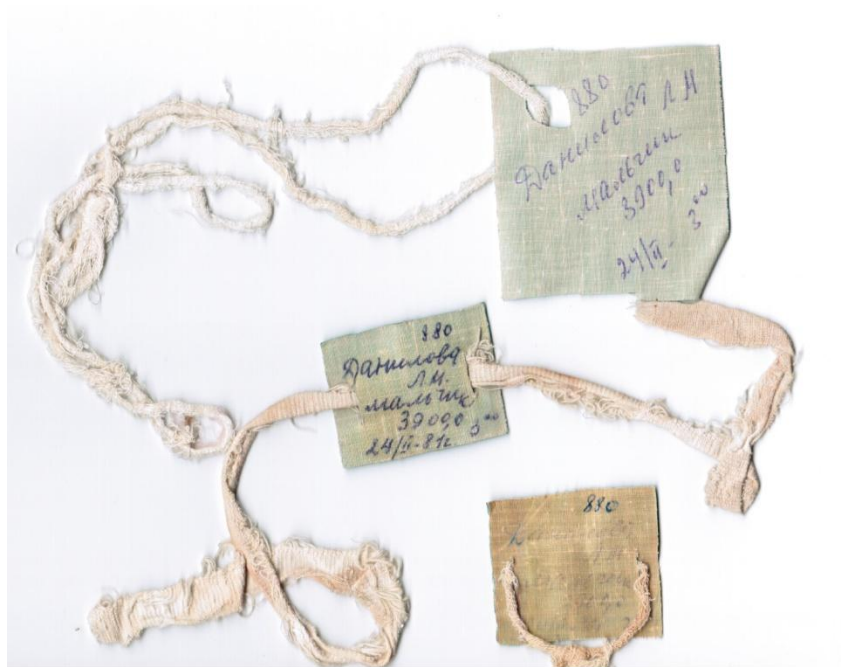 880
Данилова Л М
мальчик
3900,0
24/II- 3⁰⁰
880
Данилова
Л.М.
мальчик
3900,0
24/II-81г. 3⁰⁰
880